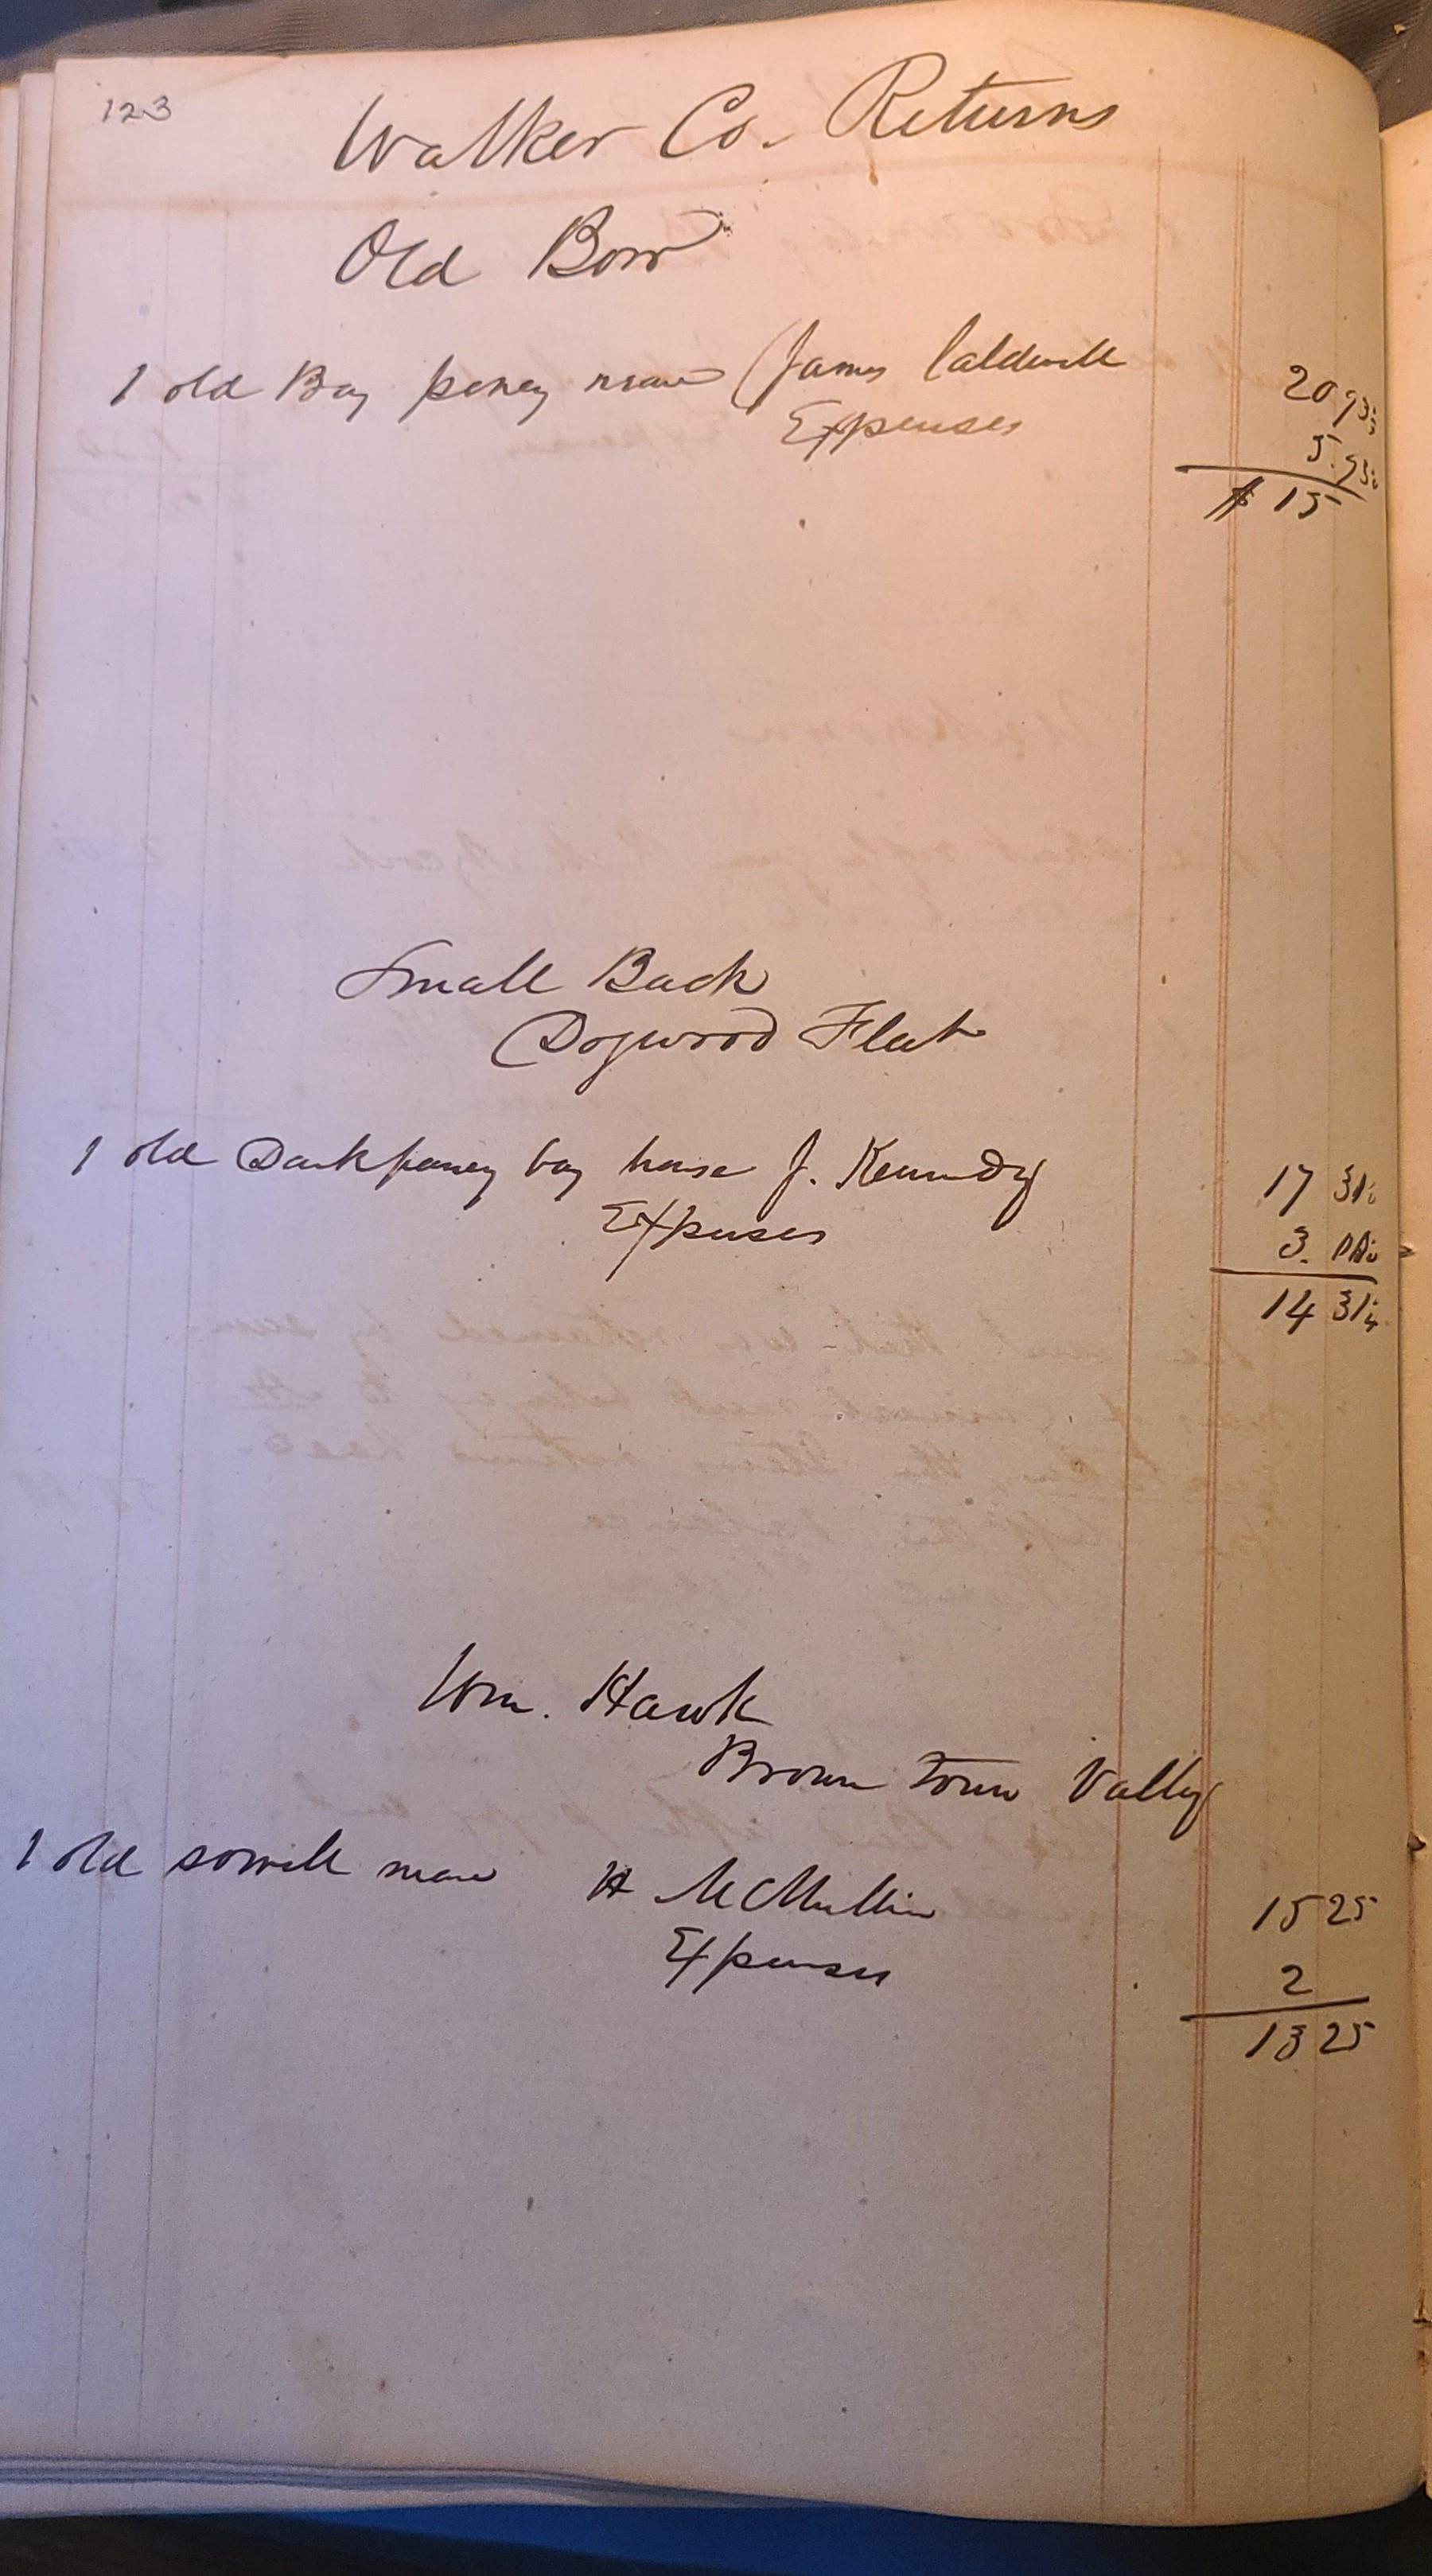 123
Walker Co. Returns
Old Bow
1 old Bay poney mare (James Caldwell 20 93¾
Expenses 5.93¾
$ 15
Small Back
Dogwood Flat
1 old Dark poney bay horse J. Kennedy 17 31¼
Expenses 3.
14 31¼
Wm. Hawk
Brown Town Valley
1 old sorrell mare H McMullin 15 25
Expenses 2
13 25